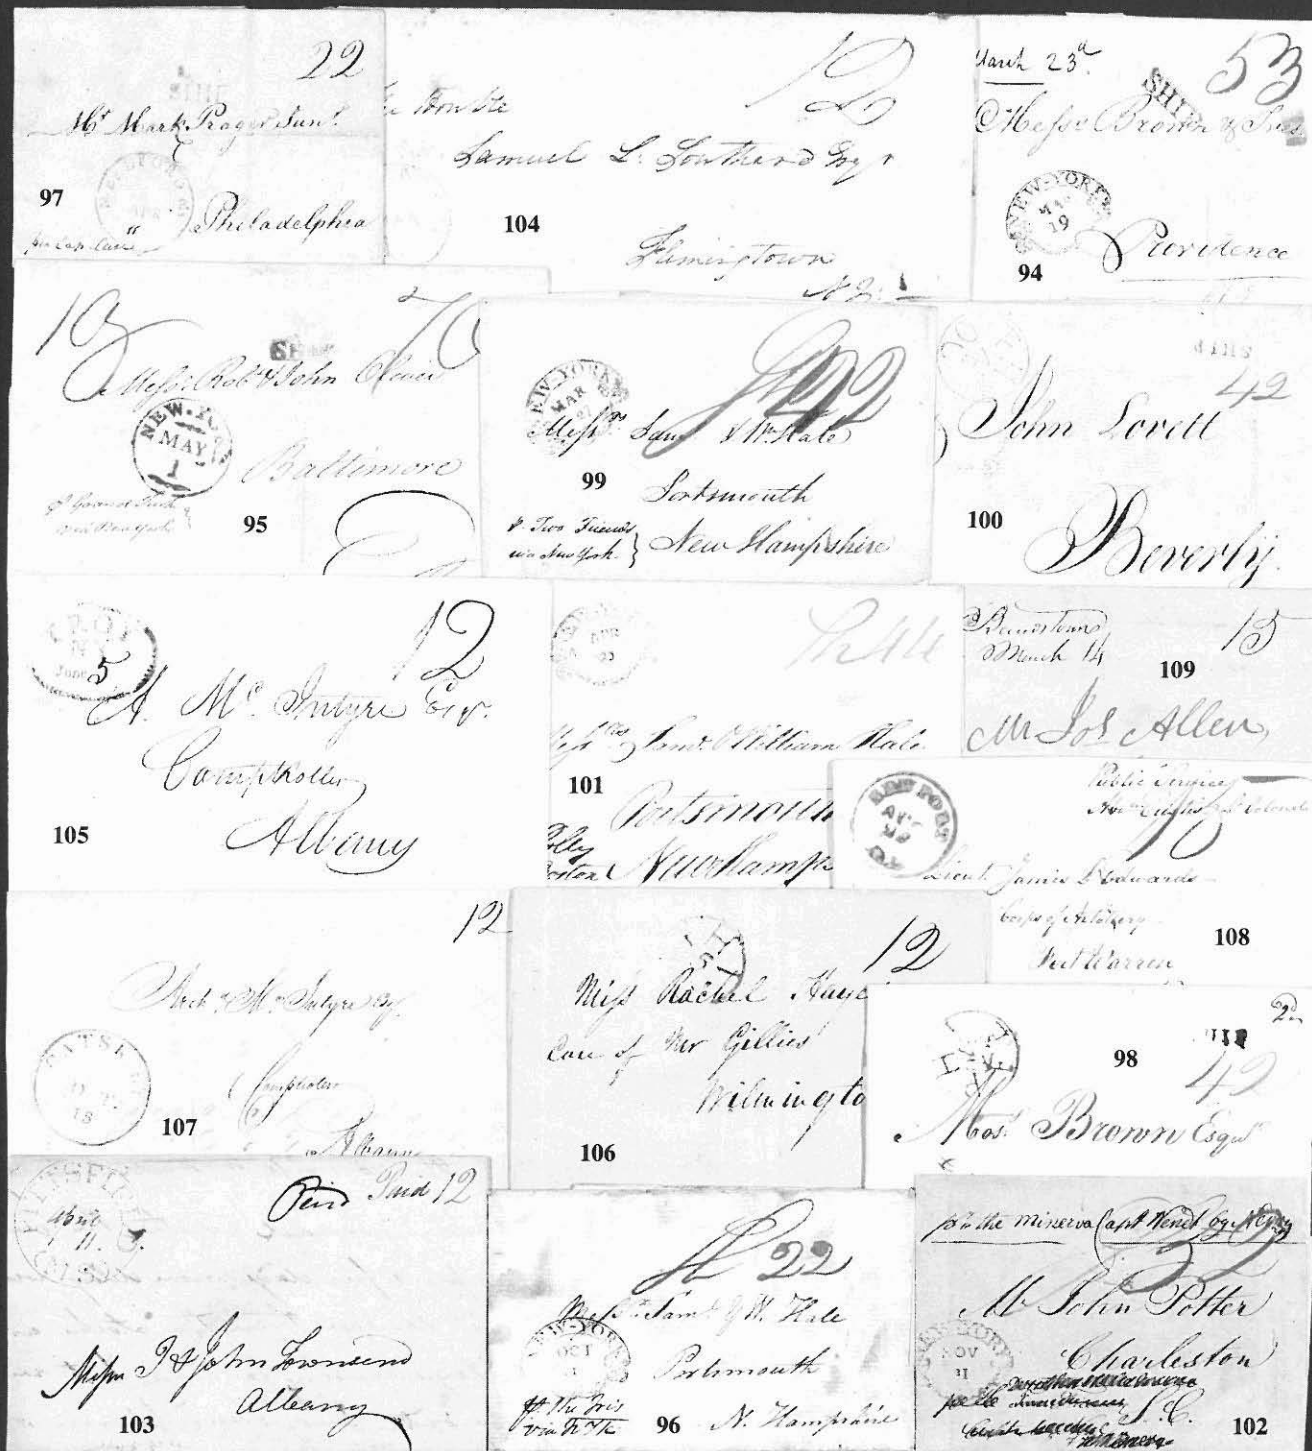 22
Mr. Mark Prager Junr.
97
Philadelphia
12
Samuel L. Southard Esqr
104
Flemingtown
N J.
March 23d.
SHIP
53
Messrs Brown & Ives
NEW-YORK
MAR
19
94
Providence
10
70
Messrs Robt & John Oliver
NEW-YO
MAY
1
Baltimore
via New York
95
NEW-YORK
MAR
42
Messrs Saml & Wm Hale
99
Portsmouth
pr Two Friends
via New York
New Hampshire
SHIP
42
John Lovett
100
Beverly.
TROY
June
5
12
A. Mc. Intyre Esqr.
Comptroller
105
Albany
APR
Sh 44
Messrs Saml & William Hale
101
Portsmouth
New Hamps
March 14
15
109
Mr Jos Allen
Public Service
Lieut. James L Edwards
Corps of Artillery
108
Fort Warren
12
Archd Mc Intyre Esq.
CATSK
18
Comptroller
107
Albany
12
Miss Rachel Haye
Care of Mr Gillies
Wilmingto
106
98
42
Mos. Brown Esqr
PITTSFI
Paid Paid 12
April
11.
Messrs I & John Townsend
Albany
103
Sh 22
Messrs Saml & W. Hale
NEW-YORK
OCT
1
Portsmouth
pr the Iris
via N Yk
96
N. Hampshire
pr the Minerva Capt
Mr John Potter
NEW-YORK
NOV
11
Charleston
S. C.
102